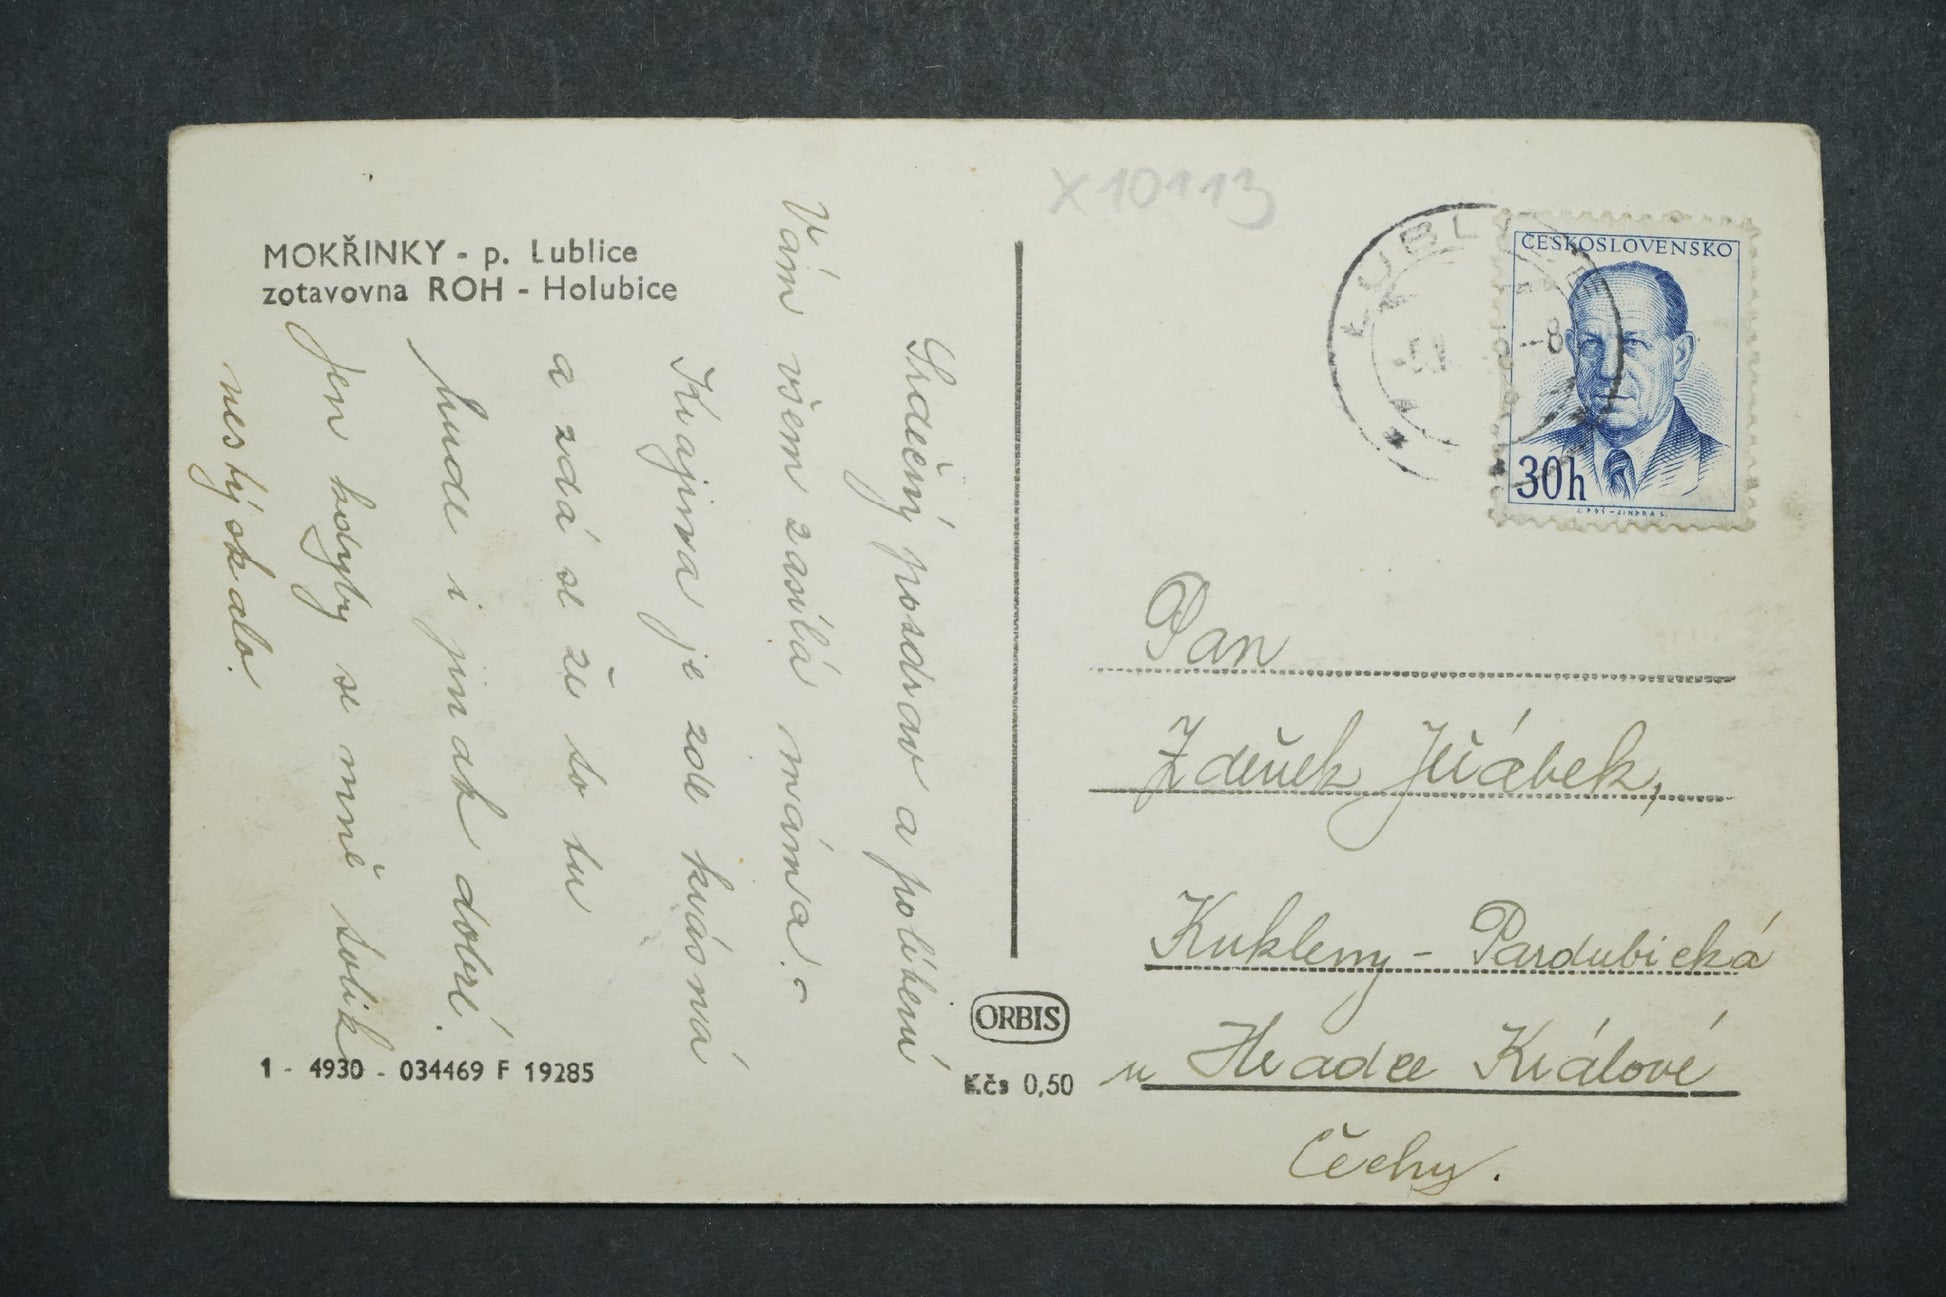 MOKŘINKY - p. Lublice
zotavovna ROH - Holubice
Srdečný pozdrav a políbení
Vám všem zasílá máma.
Krajina je zde krásná
a zdá se že to tu
bude i jinak dobré.
Jen kdyby se mně tolik
nestýskalo.
1 - 4930 - 034469 F 19285
ORBIS
Kčs 0,50
X10113
ČESKOSLOVENSKO
30h
J. POŠ - JINDRA S.
Pan
Zdeněk Jeřábek,
Kukleny - Pardubická
u Hradce Králové
Čechy.